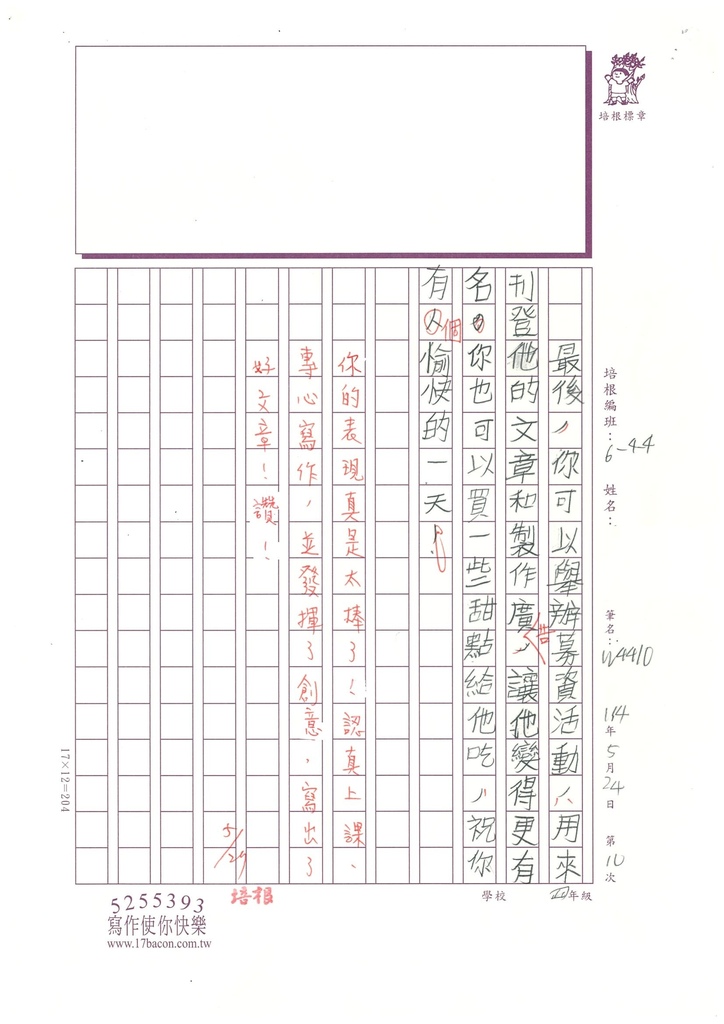 培根標章
培根編班：6-44
姓名：
筆名：W4410
114年5月24日 第10次
四年級
學校
最後，你可以舉辦募資活動，用來
刊登他的文章和製作廣告，讓他變得更有
名。你也可以買一些甜點給他吃，祝你
有個愉快的一天！
你的表現真是太棒了！認真上課、
專心寫作，並發揮了創意，寫出了
好文章！讚！
5/24
培根
17×12=204
5255393
寫作使你快樂
www.17bacon.com.tw